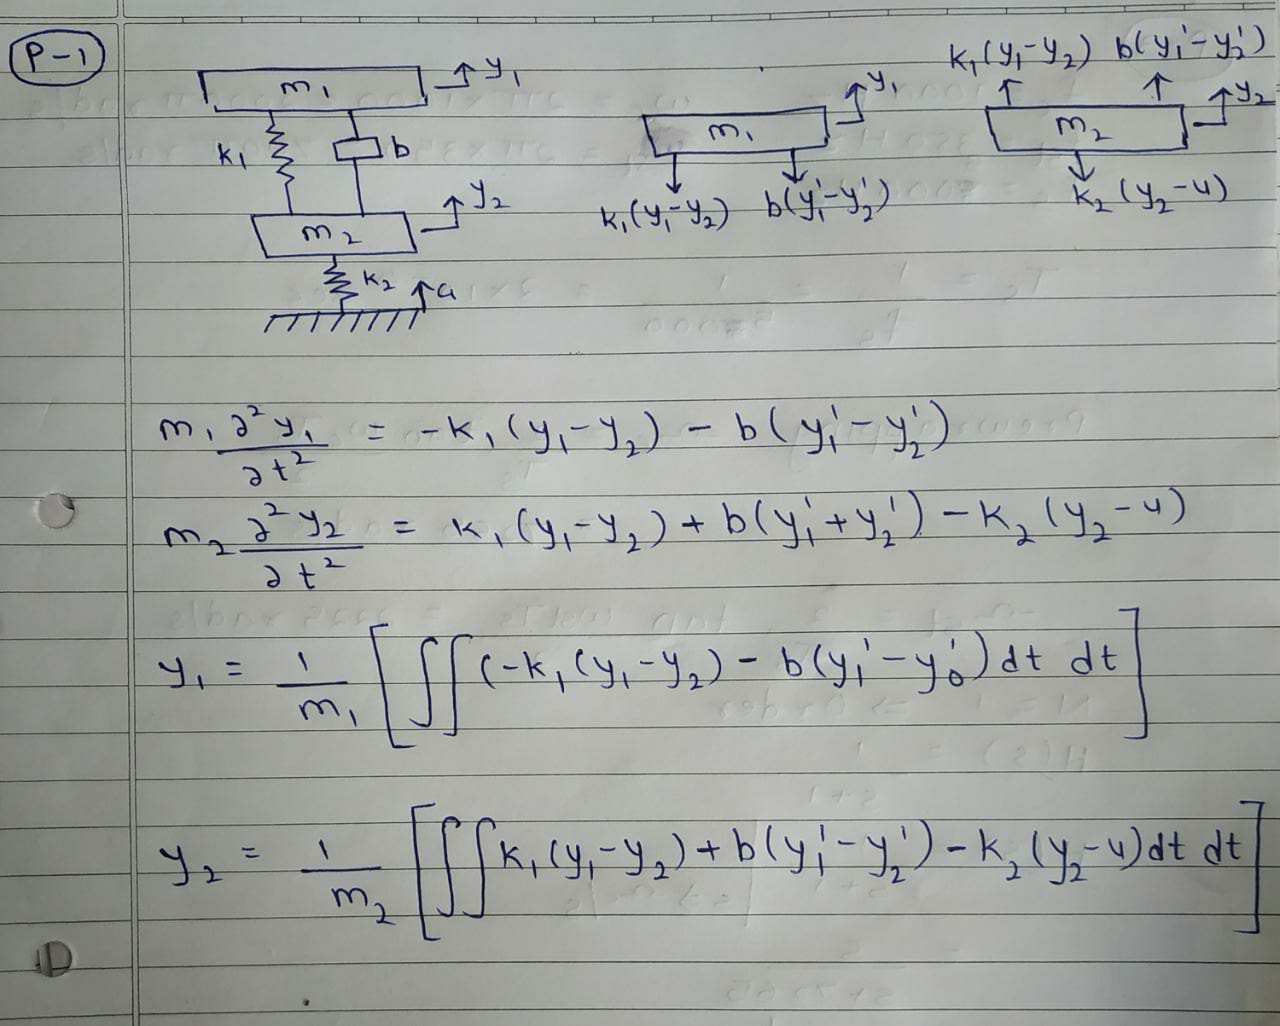 P-1
m₁ y₁
k₁ b
m₂ y₂
k₂ u
m₁ y₁
k₁(y₁-y₂) b(y₁'-y₂')
k₁(y₁-y₂) b(y₁'-y₂')
m₂ y₂
k₂(y₂-u)
m₁ ∂²y₁/∂t² = -k₁(y₁-y₂) - b(y₁'-y₂')
m₂ ∂²y₂/∂t² = k₁(y₁-y₂) + b(y₁'+y₂') - k₂(y₂-u)
y₁ = 1/m₁ [∫∫(-k₁(y₁-y₂) - b(y₁'-y₀')dt dt]
y₂ = 1/m₂ [∫∫k₁(y₁-y₂) + b(y₁'-y₂') - k₂(y₂-u)dt dt]